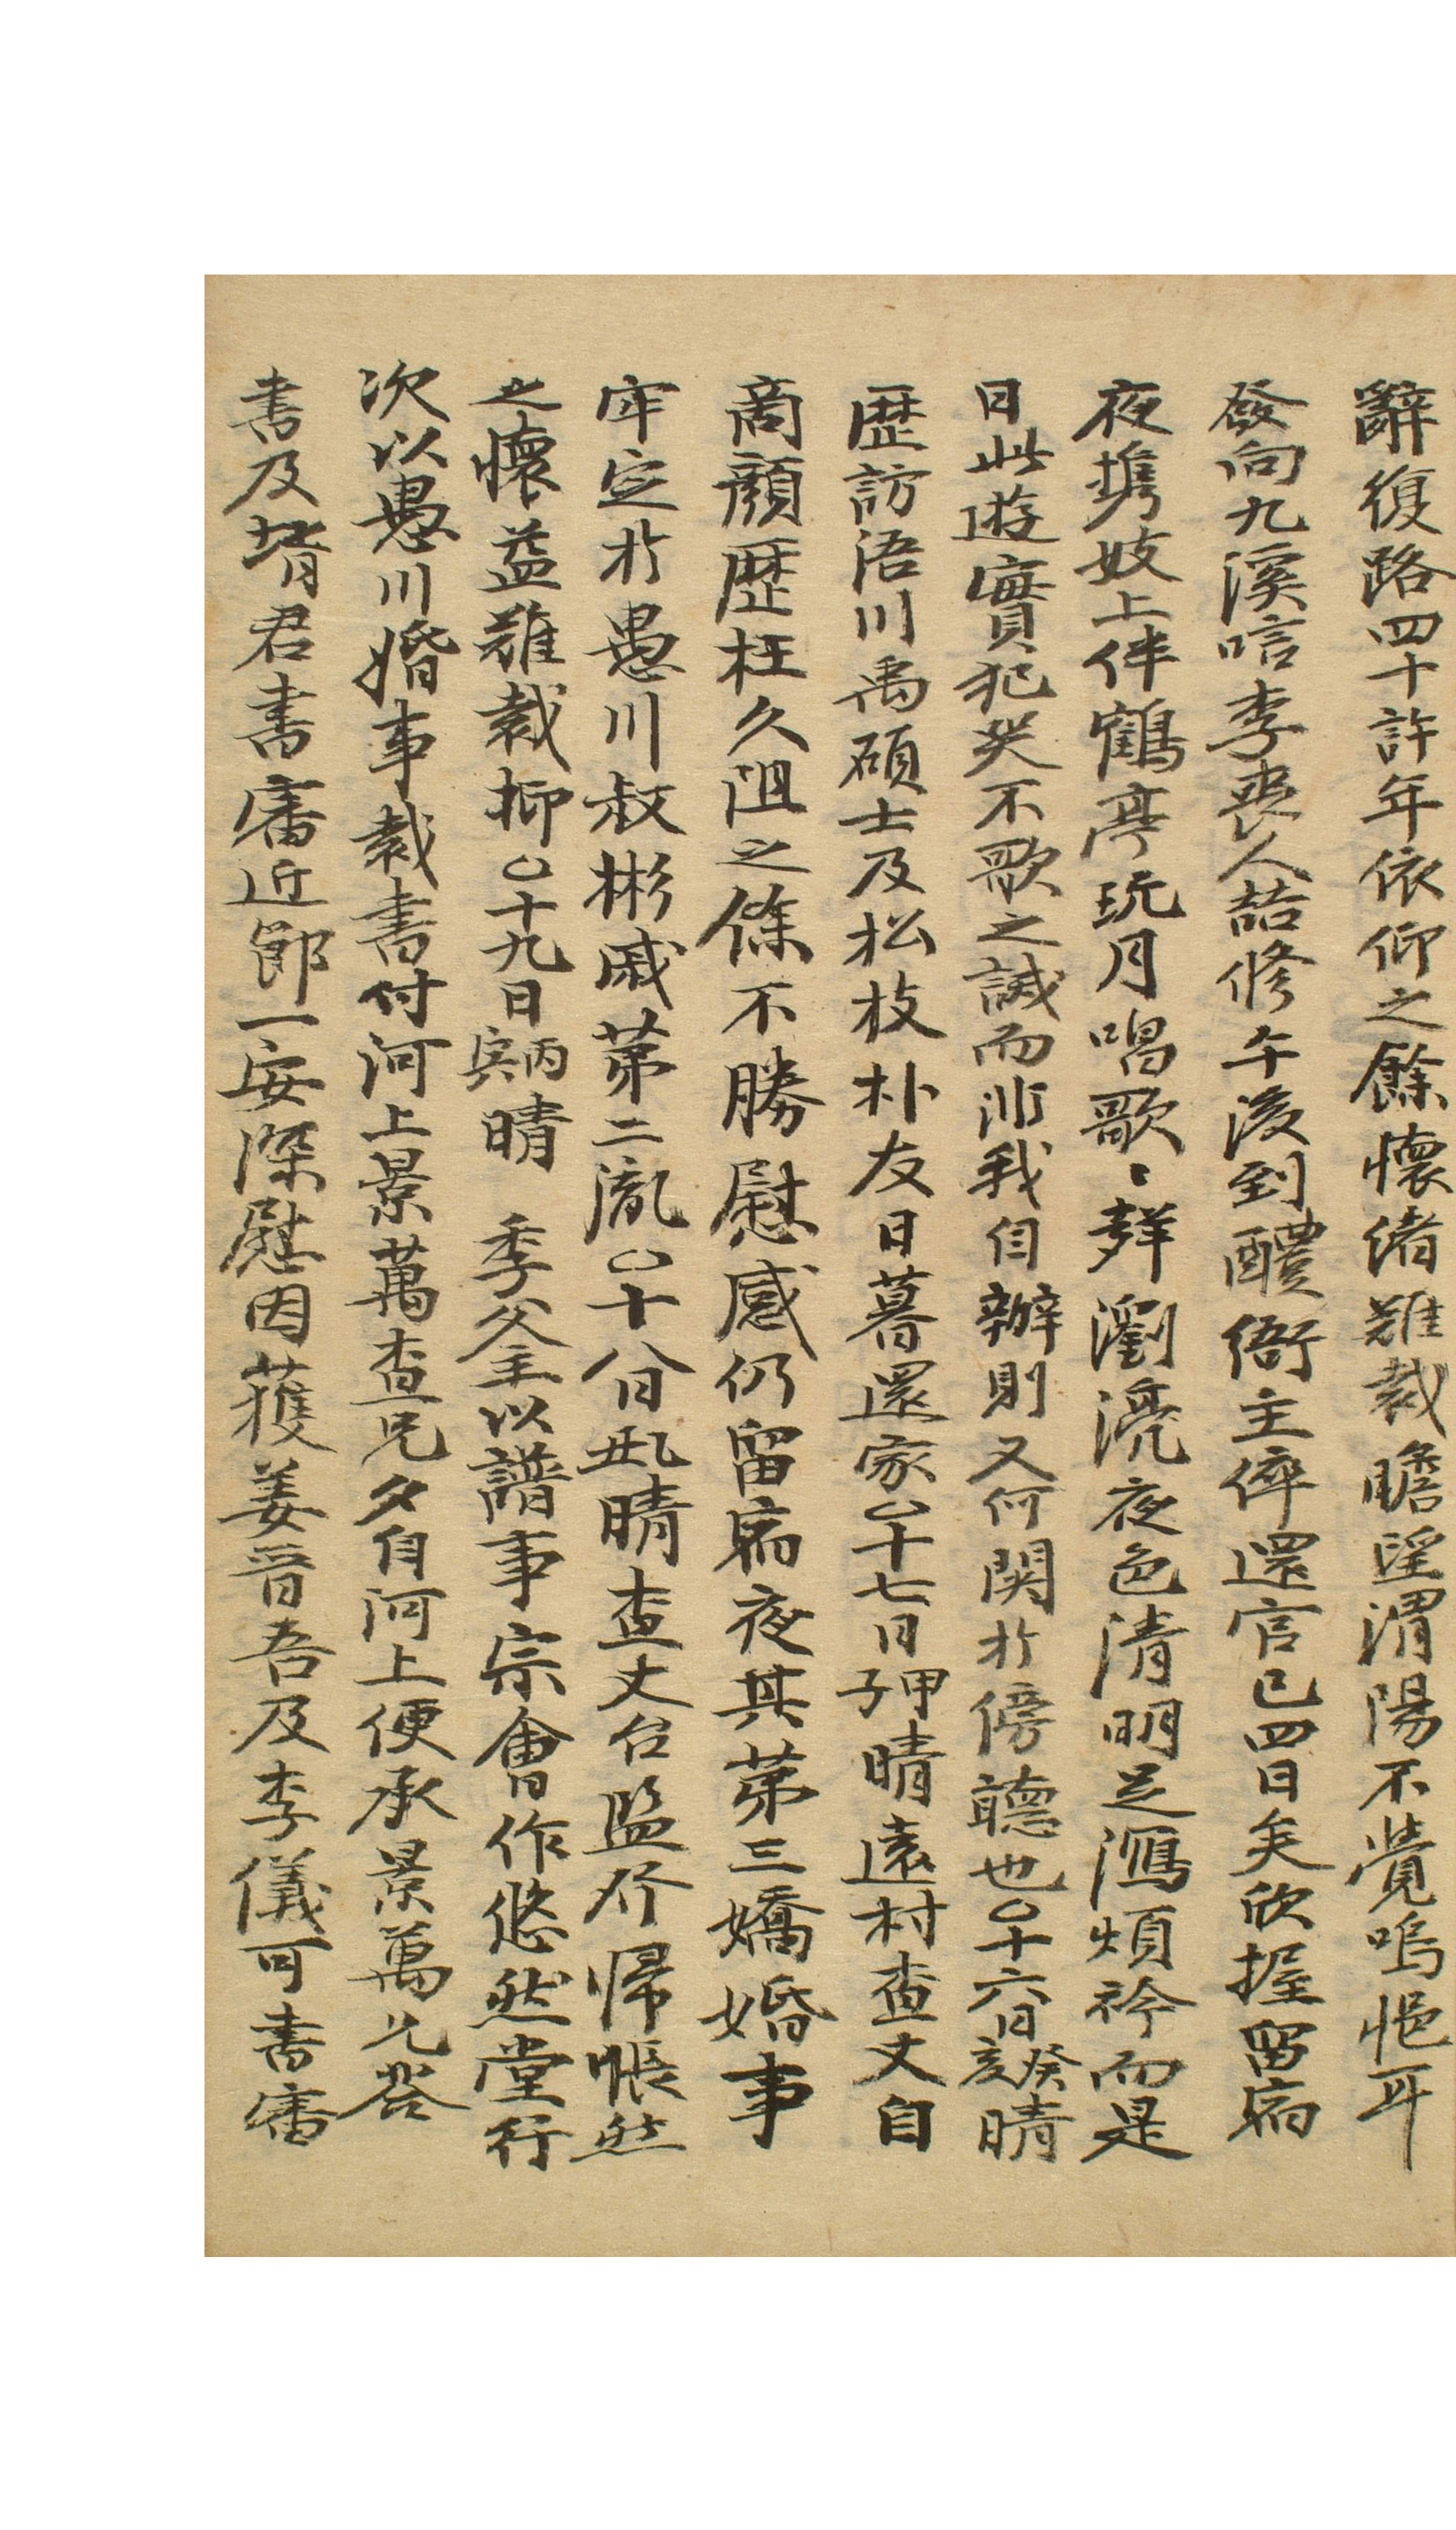 辭復路四十許年依仰之餘懷緒難裁瞻望渭陽不覺嗚悒耳
發向九溪唁李喪人喆修午後到醴衙主倅還官已四日矣欣握留宿
夜携妓上伴鶴亭玩月唱歌〻聲瀏湸夜色淸明足滌煩衿而是
日此遊實犯哭不歌之誡而非我自辦則又何関於傍聽也○十六日癸亥晴
歷訪浯川禹碩士及松枝朴友日暮還家○十七日甲子晴遠村査丈自
商顔歷枉久阻之餘不勝慰感仍留宿夜其第三嬌婚事
牢定於愚川叔彬戚第二胤○十八日乙丑晴査丈台監卽歸悵然
之懷益難裁抑○十九日丙寅晴 季父主以譜事宗會作悠然堂行
次以愚川婚事裁書付河上景萬査兄夕自河上便承景萬兄答
書及壻君書審近節一安深慰因獲姜晉吾及李儀可書審